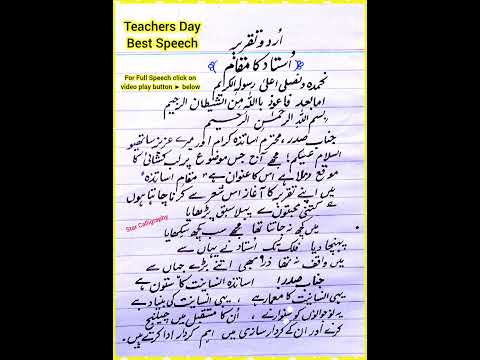 Teachers Day
Best Speech
For Full Speech click on
video play button ► below
اُردو تقریر
﴿اُستاد کا مقام﴾
نحمدہ و نصلی اعلیٰ رسولہِ الکریم
اما بعد فاعوذ باللہِ مِن الشیطان الرجیم
بسم اللہِ الرحمٰن الرحیم
جناب صدر، محترم اساتذہ کرام اور میرے عزیز ساتھیو
السلام علیکم! مجھے آج جس موضوع پر لب کشائی کا
موقع ملا ہے اس کا عنوان ہے "مقامِ اساتذہ"
میں اپنے تقریر کا آغاز اس شعر سے کرنا چاہتا ہوں
کتنی محبتوں سے پہلا سبق پڑھایا
میں کچھ نہ جانتا تھا مجھے سب کچھ سکھایا
Star Calligraphy
پہنچا دیا فلک تک اُستاد نے یہاں سے
میں واقف نہ تھا ذرا بھی اتنے بڑے جہاں سے
جناب صدر! اساتذہ انسانیت کا ستون ہے
یہی انسانیت کا معمار ہے، یہی انسانیت کی بنیاد ہے
یہ نوجوانوں کو سنوارنے، اُن کا مستقبل میں چیلنج
کرنے اور ان کے کردار سازی میں اہم کردار ادا کرتے ہیں۔